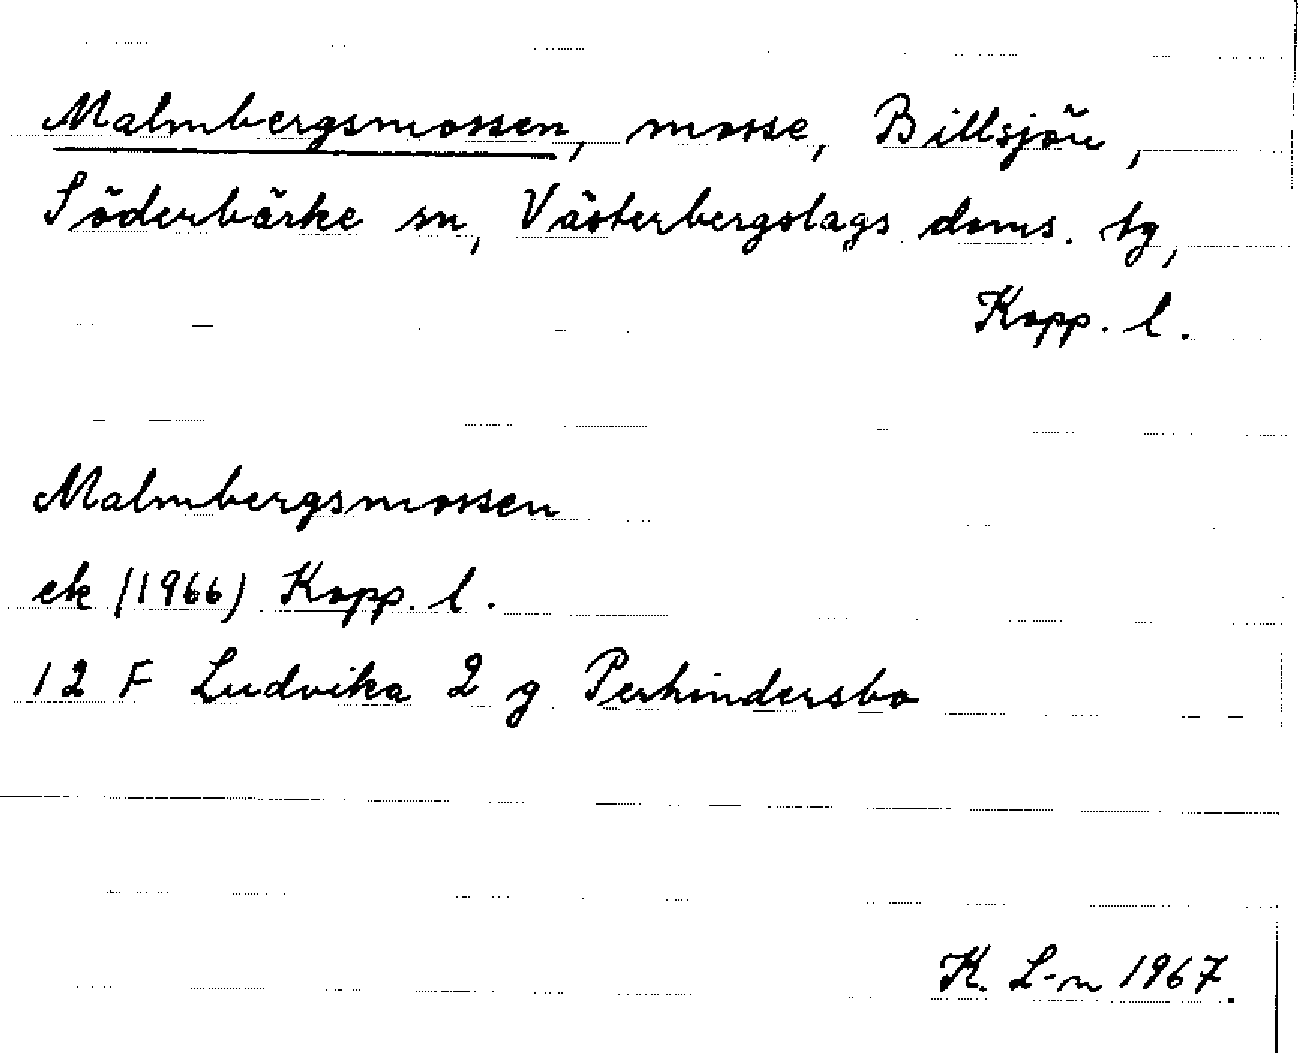 Malmbergsmossen, mosse, Billsjön,
Söderbärke sn, Västerbergslags doms. tg,
Kopp. l.
Malmbergsmossen
ek (1966) Kopp. l.
12 F Ludvika 2 g Perhindersbo
K. L-n 1967.